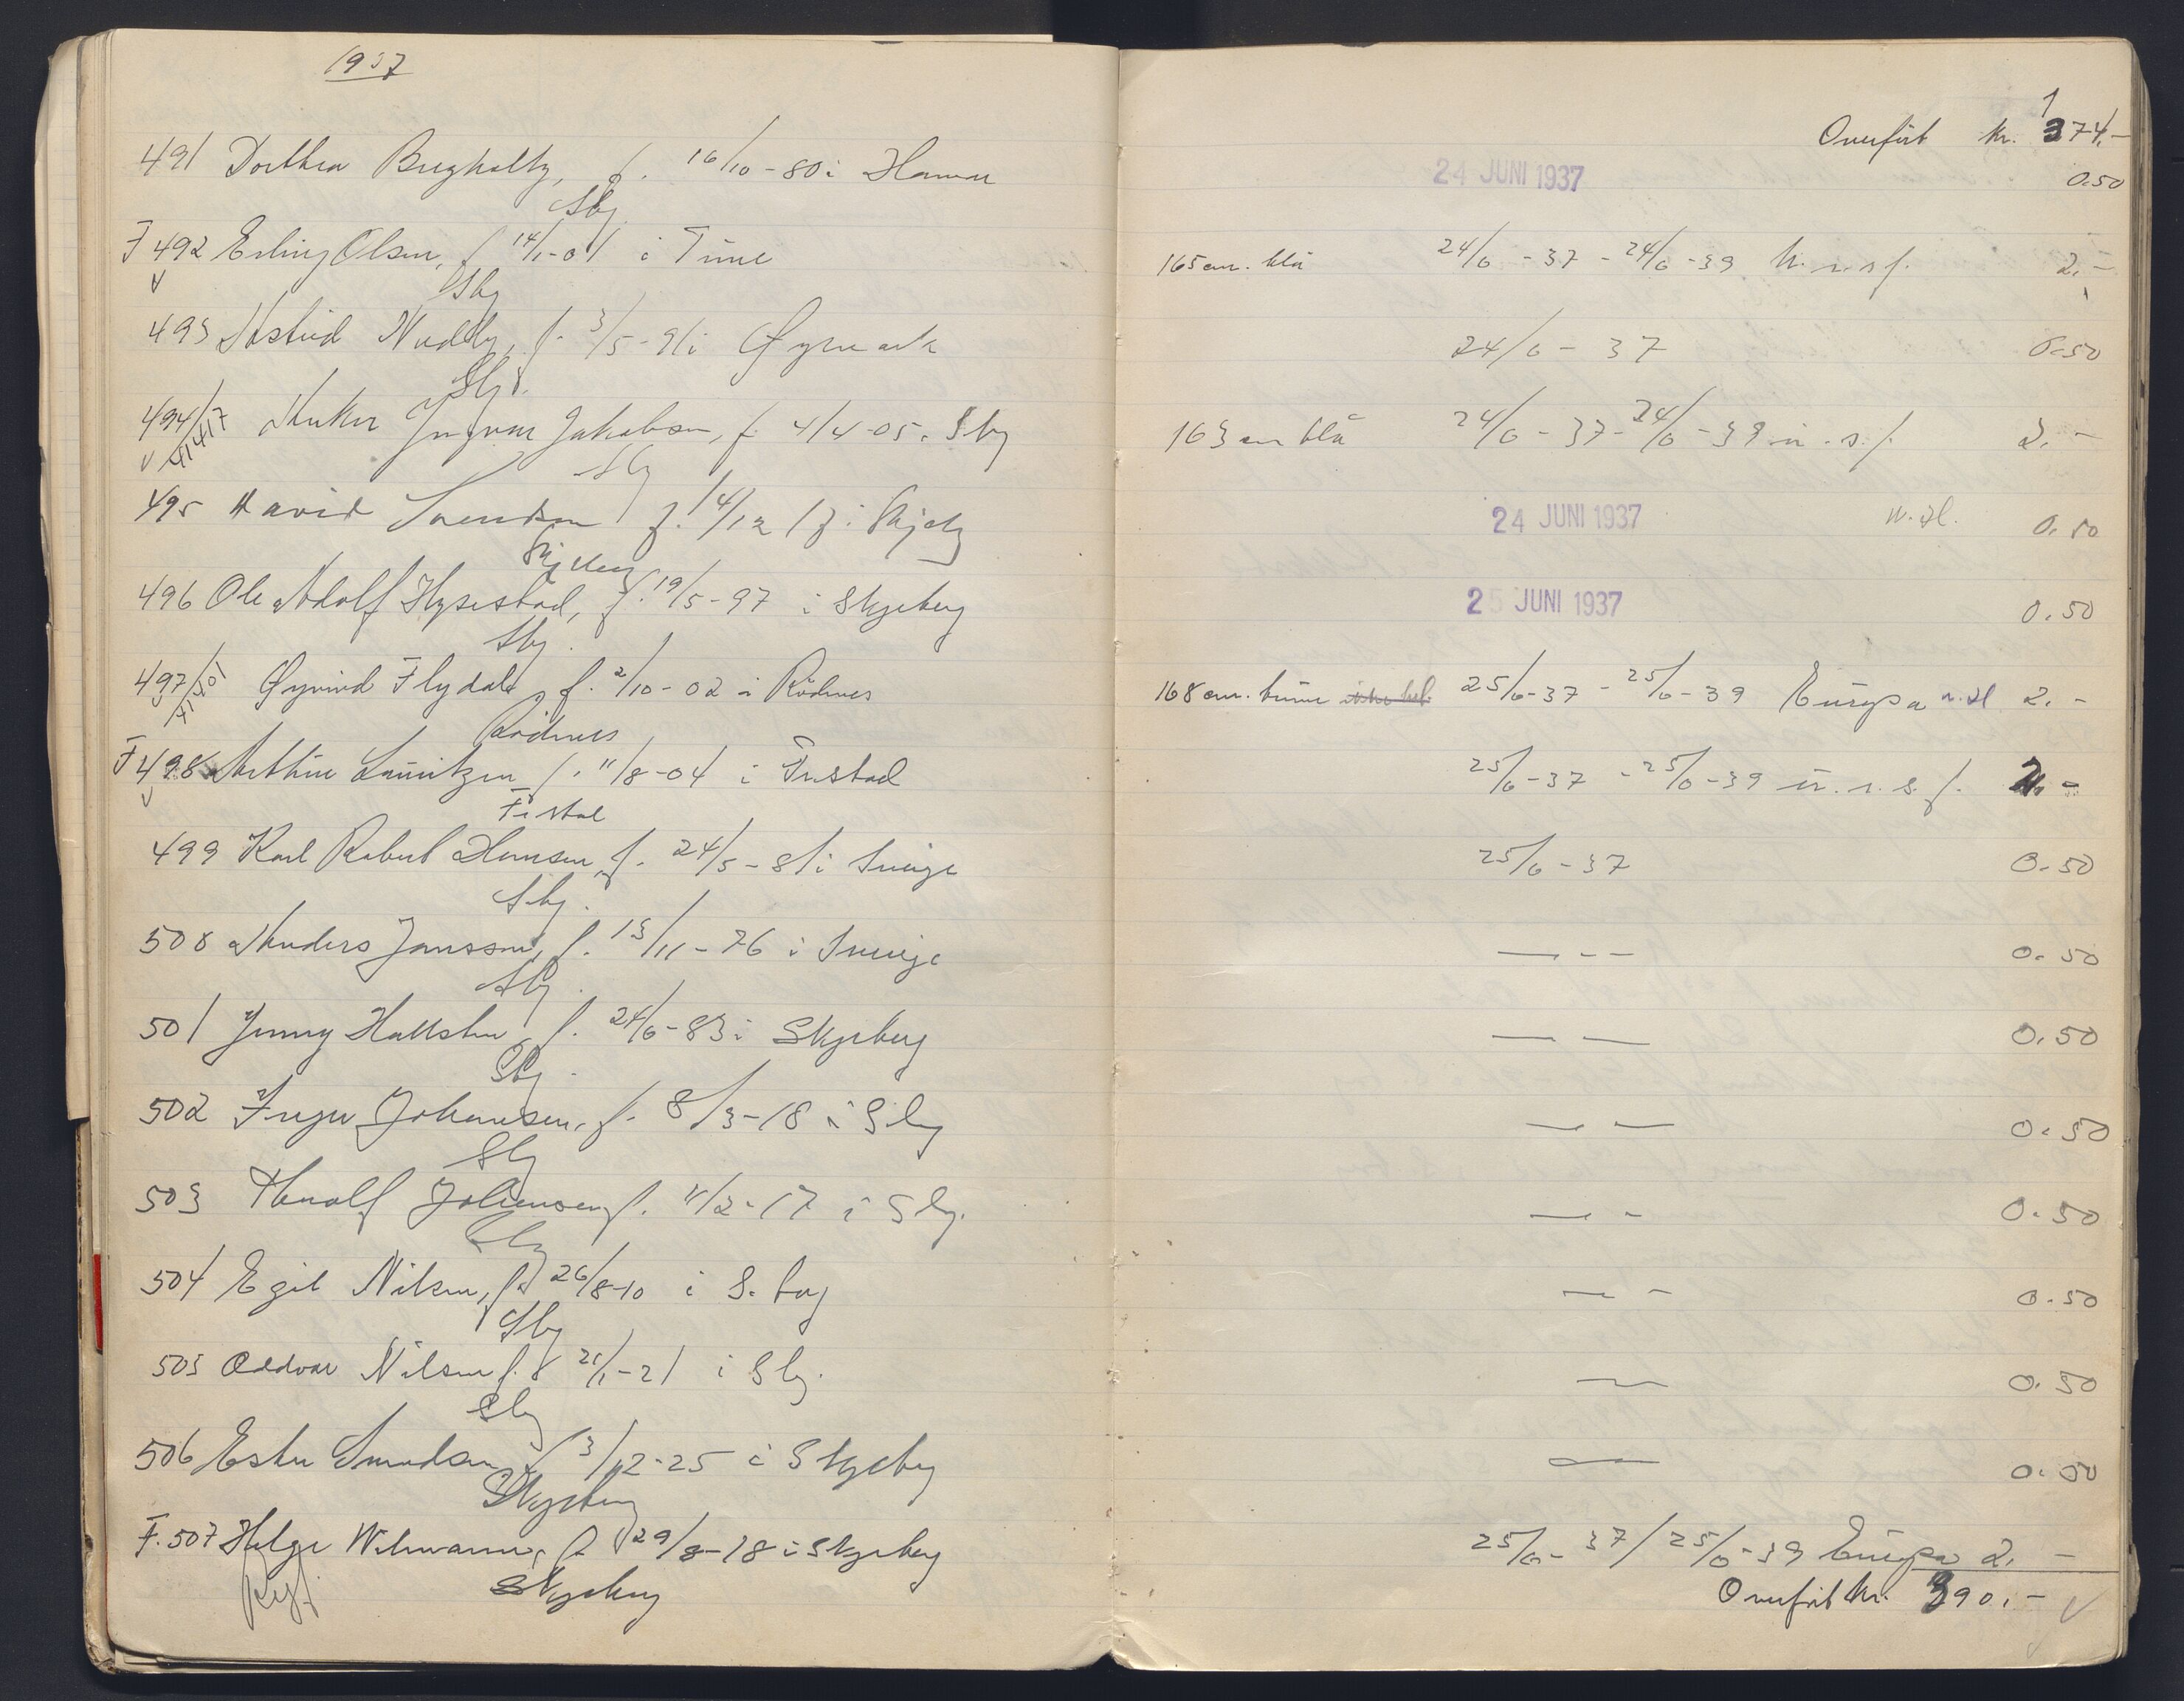 1937
491 Dorthea Bugholtz, f. 16/10-80 i Hamar
Sbg.
F 492 Erling Olsen, f 14/1-01 i Tune
Sbg
493 Astrid Nuddy, f. 3/5-91 i Øymark
Sbg.
494/ Anker Ingvar Jakobsen, f. 4/4-05 i Sbg
Sbg
495 David Svendsen f. 14/12 17 i
496 Ole Adolf f. 19/5-97 i Skjeberg
Sbg.
497/ Øyvind Flydal, f. 2/10-02 i Rödnes
Rödnes
F 498 Arthur Lauritzen f. 11/8-04 i
499 Karl Robert Hansen, f. 24/5-81 i Sverige
Sbg.
500 Anders Jansson, f. 13/11-76 i Sverige
Sbg.
501 Jenny f. 24/6-83 i Skjeberg
Sbg.
502 Johansen, f. 8/3-18 i Sbg
Sbg
503 Johansen f. 4/2-17 i Sbg.
Sbg
504 Egil Nilsen, f. 26/8-10 i S.borg
Sbg
505 Oddvar Nilsen f. 21/1-21 i Sbg.
Sbg
506 Ester f 3/12-25 i Skjeberg
Skjeberg
F. 507 Helge Wilmann, f. 29/8-18 i Skjeberg
Skjeberg
Overført kr. 374,-
24 JUNI 1937 0.50
165 cm. blå 24/6-37 - 24/6-39 2,-
24/6-37 0.50
163 cm blå 24/6-37-24/6-39 2.-
24 JUNI 1937 0.50
25 JUNI 1937 0.50
168 cm. brune 25/6-37 - 25/6-39 Europa 2.-
25/6-37 - 25/6-39 2.-
25/6-37 0.50
— - - 0.50
— — 0.50
— — 0.50
— - 0.50
— - 0.50
— 0.50
— 0.50
25/6-37/25/6-39 Europa 2.-
Overført kr. 390.-